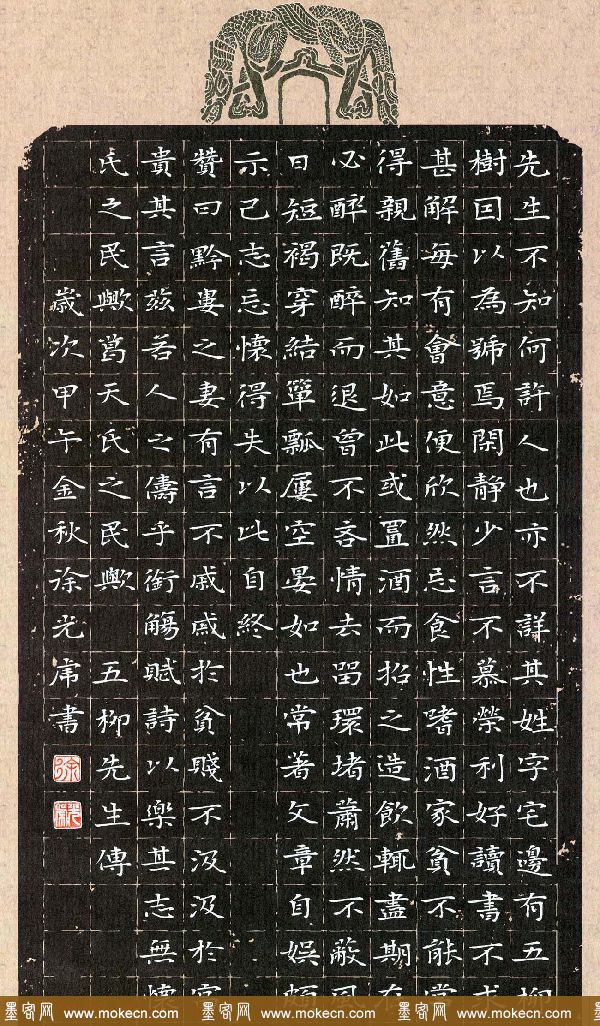 先生不知何許人也亦不詳其姓字宅邊有五柳
樹因以為號焉閑靜少言不慕榮利好讀書不求
甚解每有會意便欣然忘食性嗜酒家貧不能常
得親舊知其如此或置酒而招之造飲輒盡期在
必醉既醉而退曾不吝情去留環堵蕭然不蔽風
日短褐穿結簞瓢屢空晏如也常著文章自娛頗
示己志忘懷得失以此自終
贊曰黔婁之妻有言不戚戚於貧賤不汲汲於富
貴其言茲若人之儔乎銜觴賦詩以樂其志無懷
氏之民歟葛天氏之民歟 五柳先生傳
歲次甲午金秋徐光書
徐
墨客网 www.mokecn.com 墨客网 www.mokecn.com 墨客网 www.mokecn.com